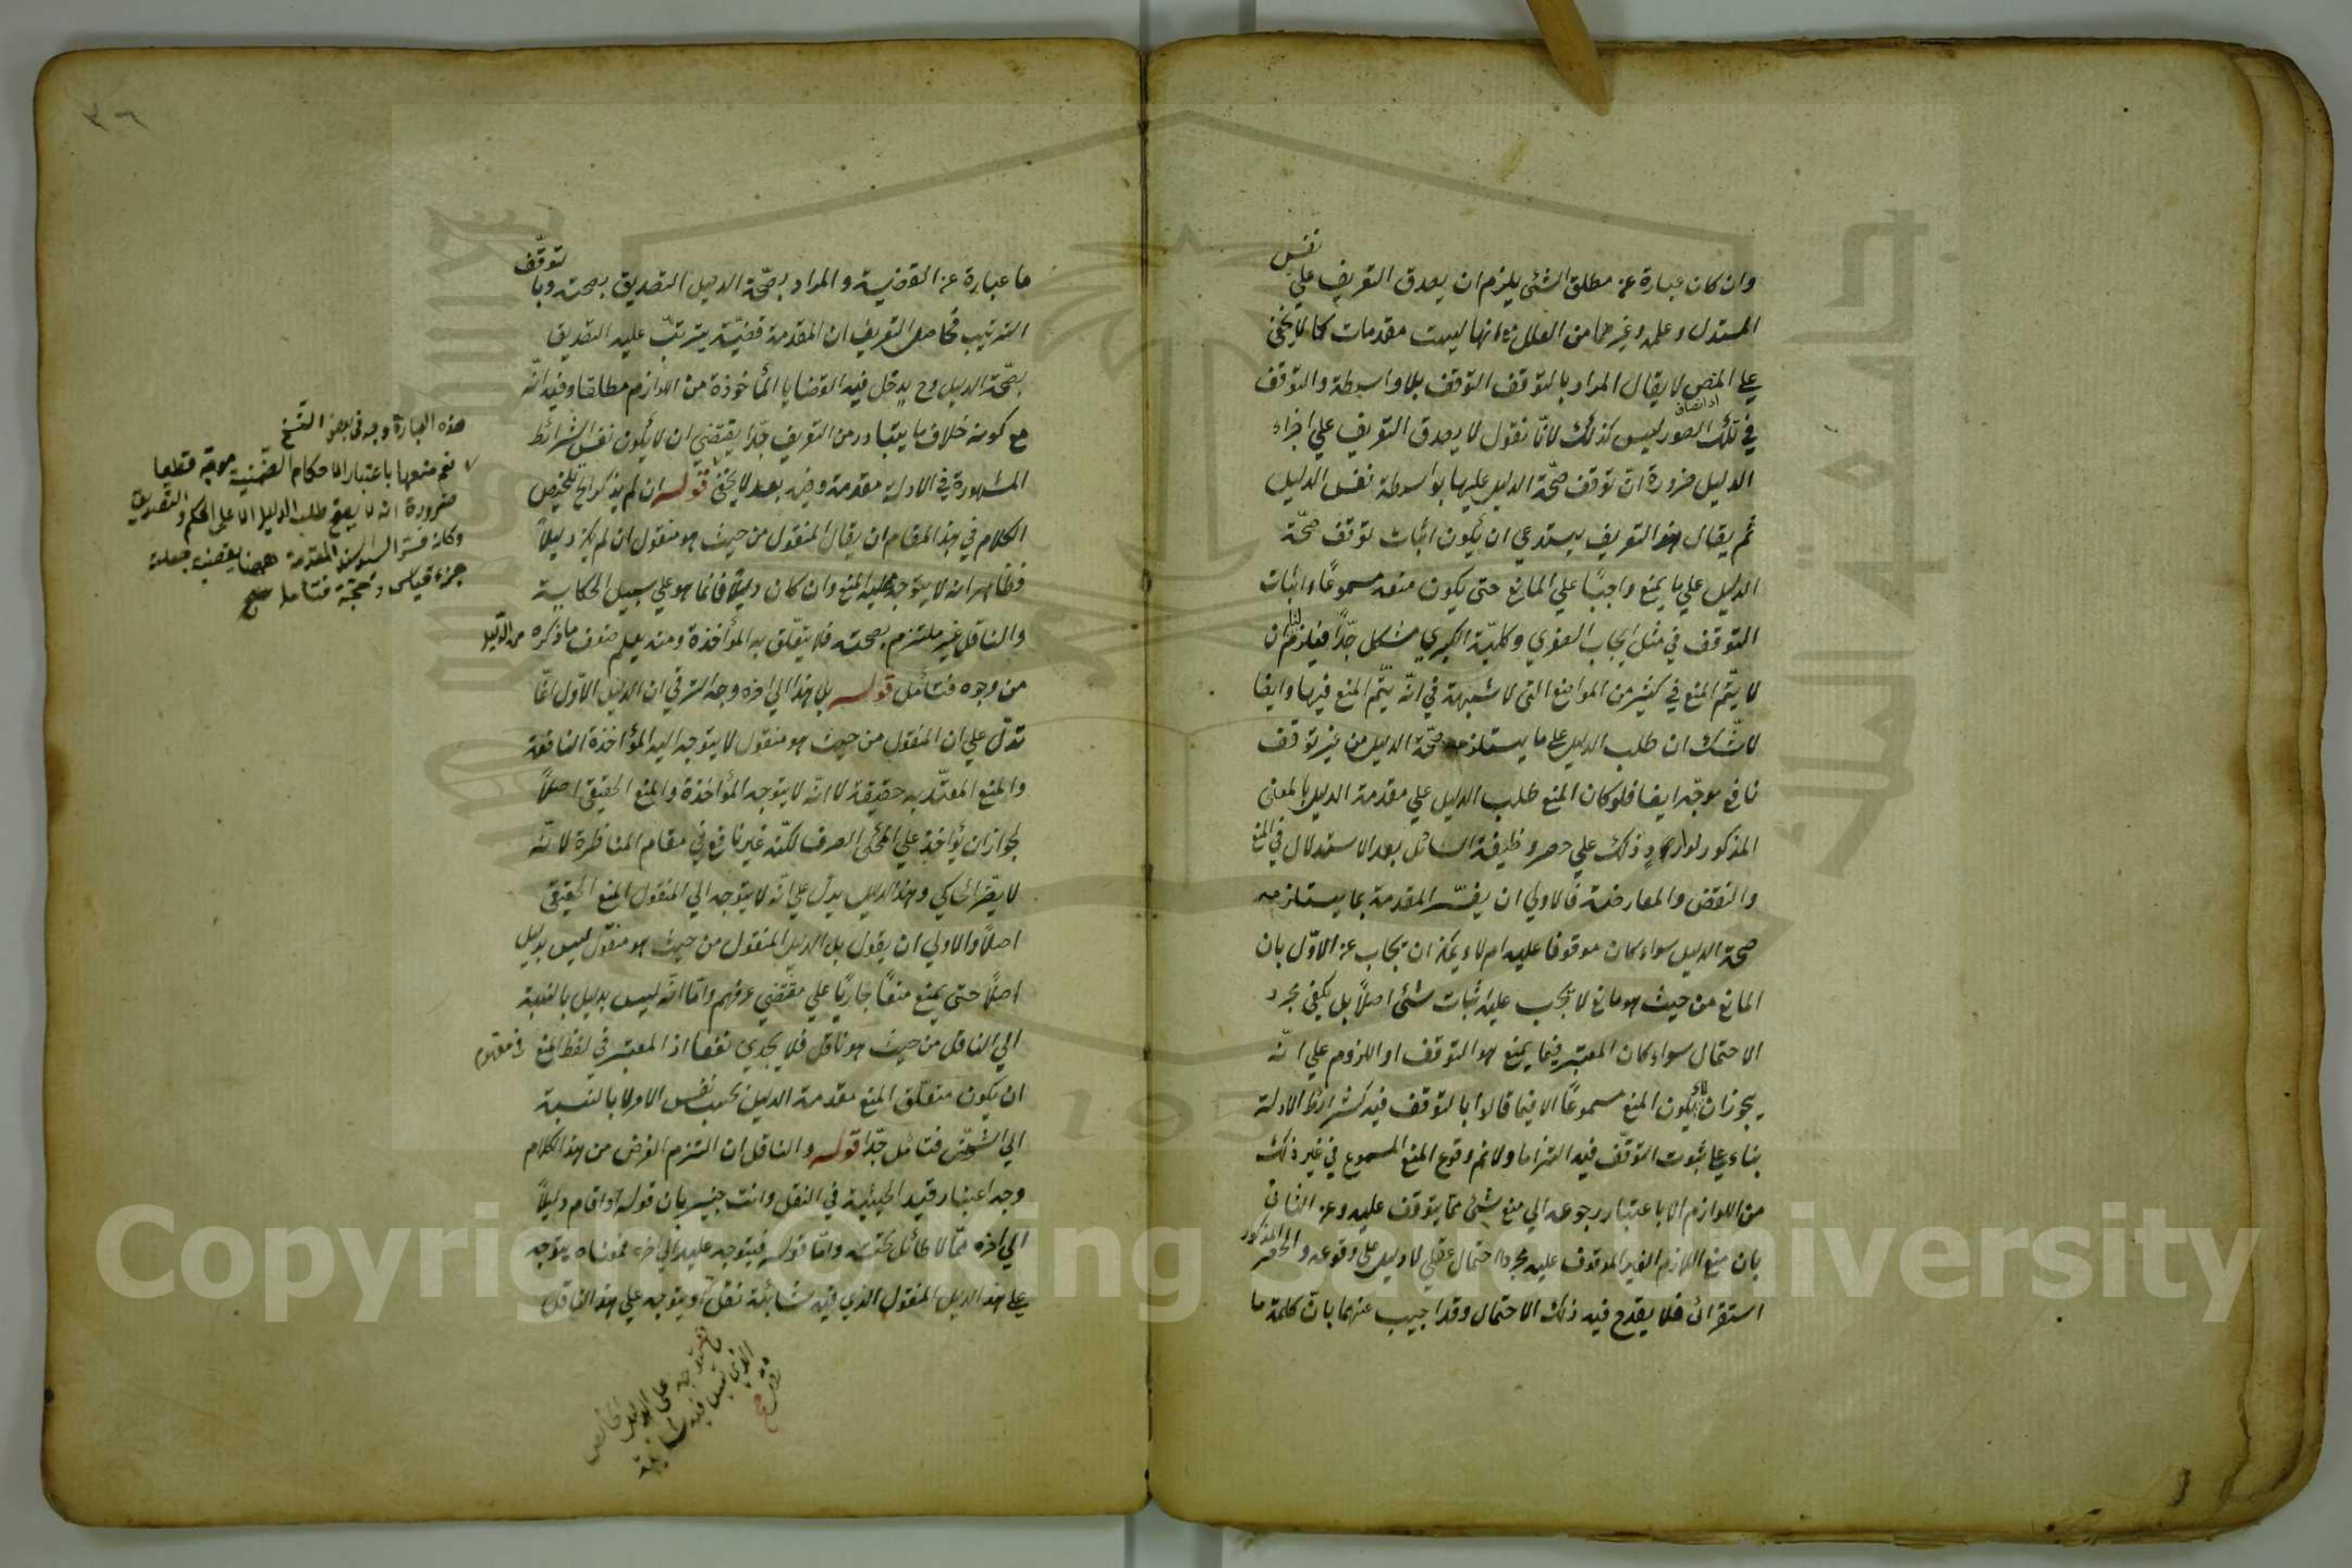 نفس
وان كان عبارة عن مطلق الشئ يلزم ان يصدق التعريف علي
المستدل وعلمه وغيرهما من العلل مع انها ليست مقدمات كما لا يخفى
على المنصف لا يقال المراد بالتوقف التوقف بلا واسطة والتوقف
في تلك الصور ليس كذلك لانّا نقول لا يصدق التعريف علي اجزاء
الدليل ضرورة انّ توقف صحّة الدليل عليها بواسطة نفس الدليل
ثم يقال هذا التعريف يستدعي ان يكون اثبات توقف صحّة
الدليل علي ما يمنع واجبًا علي المانع حتى يكون منعه مسموعًا واثبات
التوقف في مثل ايجاب الصغرى وكليّة الكبرى مشكل جدّا فيلزم ان
لا يتّم المنع في كثير من المواضع التى لا شبهة في انّه يتّم المنع فيها وايضا
لا شّك ان طلب الدليل على ما يستلزمه صحّة الدليل من غير توقف
نافع موجّه ايضا فلو كان المنع طلب الدليل علي مقدمة الدليل بالمعنى
المذكور ذلك علي حصر وظيفة السائل بعد الاستدلال في المنع
والنقض والمعارضة فالاولي ان يفسّر المقدمة بما يستلزمه
صحة الدليل سواء كان موقوفا عليه ام لا ويمكن ان يجاب عن الاوّل بان
المانع من حيث هو مانع لا يجب عليه اثبات شئ اصلاً بل يكفي مجرد
الاحتمال سواء كان المعتبر فيما يمنع هو التوقف او اللزوم علي انّه
يجوز ان لا يكون المنع مسموعًا الا فيما قالوا بالتوقف فيه كشرائط الادلة
بناء على ثبوت التوقّف فيه التزاما ولا نم وقوع المنع المسموع في غير ذلك
من اللوازم الا باعتبار رجوعه الي منع شئ ممّا يتوقف عليه وعن الثانى
بان منع اللازم الغير الموقوف عليه مجرد احتمال عقلي لا دليل على وقوعه والحصر المذكور
استقرائى فلا يقدح فيه ذلك الاحتمال وقد اجيب عنهما بانّ كلمة ما
٣٦
توقّف
ما عبارة عن القضية والمراد بصّحة الدليل التصديق بصحته وبا
الترتيب فحاصل التعريف ان المقدمة قضيّة يترتّب عليه التصديق
بصّحة الدليل وح يدخل فيه القضايا المأخوذة من اللوازم مطلقا وفيه انّه
مع كونه خلاف ما يتبادر من التعريف جّدا يقتضي ان لا يكون نفس الشرائط
المشهورة في الادلة مقدمة وفيه بعد لا يخفى قوله ان لم يذكر الخ تلخيص
الكلام في هذا المقام ان يقال المنقول من حيث هو منقول ان لم يكن دليلاً
فظاهر انه لا يتوجه عليه المنع وان كان دليلاً فانما هو علي سبيل الحكاية
والناقل غير ملتزم بصحته فلا يتعلّق به المؤاخذة ومنه يعلم ضعف ما ذكره من الدليل
من وجوه فتأمّل قوله بل هذا الي آخره وجه الترقي ان الدليل الاوّل انّما
تدّل علي ان المنقول من حيث هو منقول لا يتوجه اليه المؤاخذة النافعة
والمنع المعتّد به حقيقة لا انّه لا يتوجه المؤاخذة والمنع الحقيقى اصلاً
لجواز ان يؤاخذ علي المحكى الصرف لكنّه غير نافع في مقام المناظرة لانّه
لا يضّر الحاكي وهذا الدليل يدلّ علي انّه لا يتوجه الي المنقول المنع الحقيقى
اصلاً والاولي ان يقول بل الدليل المنقول من حيث هو منقول ليس بدليل
اصلاً حتى يمنع منعًا جاريًا علي مقتضي عرفهم وامّا انّه ليس بدليل بالنسبة
الي الناقل من حيث هو ناقل فلا يجدي نفعا اذ المعتبر في لفظ المنع و مفهوم
ان يكون متعلّق المنع مقدمة الدليل بحسب نفس الامر لا بالنسبة
الي الشخص فتأمّل جدّا قوله والناقل ان التزم الغرض من هذا الكلام
وجه اعتبار قيد الحيثية في النقل وانت خبير بان قوله او اقام دليلاً
الي آخره ممّا لا طائل تحته وامّا قوله فيتوجه عليه الي آخره فمعناه يتوجه
على هذا الدليل المنقول الذي فيه شائبة نقل او يتوجه علي هذا الناقل
هذه العبارة وجد في بعض النسخ
نعم منعها باعتبار الاحكام الضمنية موجّه قطعا
ضرورة انه لا يصح طلب الدليل الا على الحكم والتصديق
وكانه فسّر المقدمة ههنا بقضية جعلت
جزء قياس او حجة فتأمل صح
ما يتوجه على الدليل الخالص
الذي ليس فيه شائبة
نقل صح
Copyright © King Saud University
1957